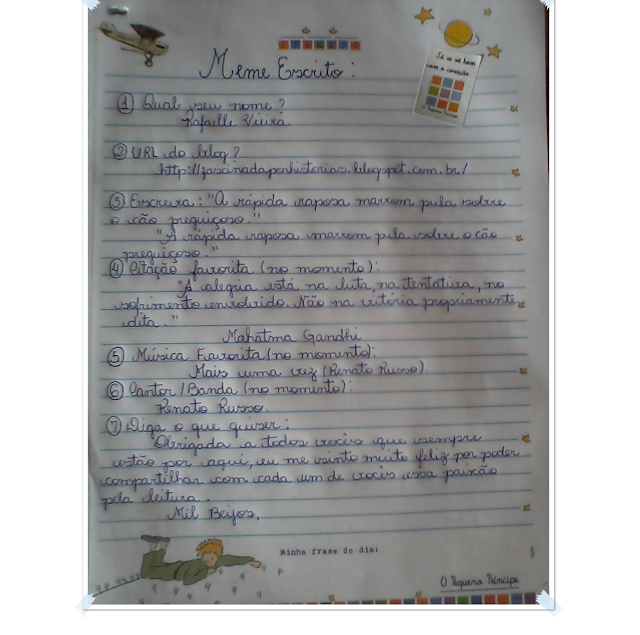 Meme Escrito:
Só se vê bem
com o coração
① Qual seu nome?
Rafaelle Vieira
② URL do blog?
http://fascinadaporhistorias.blogspot.com.br/
③ Escreva: "A rápida raposa marrom pula sobre
o cão preguiçoso."
"A rápida raposa marrom pula sobre o cão
preguiçoso."
④ Citação favorita (no momento):
"A alegria está na luta, na tentativa, no
sofrimento envolvido. Não na vitória propriamente
dita."
Mahatma Gandhi
⑤ Música Favorita (no momento):
Mais uma vez (Renato Russo).
⑥ Cantor/Banda (no momento):
Renato Russo.
⑦ Diga o que quiser:
Obrigada a todos vocês que sempre
estão por aqui, eu me sinto muito feliz por poder
compartilhar com cada um de vocês essa paixão
pela leitura.
Mil Beijos,
Minha frase do dia:
O Pequeno Príncipe